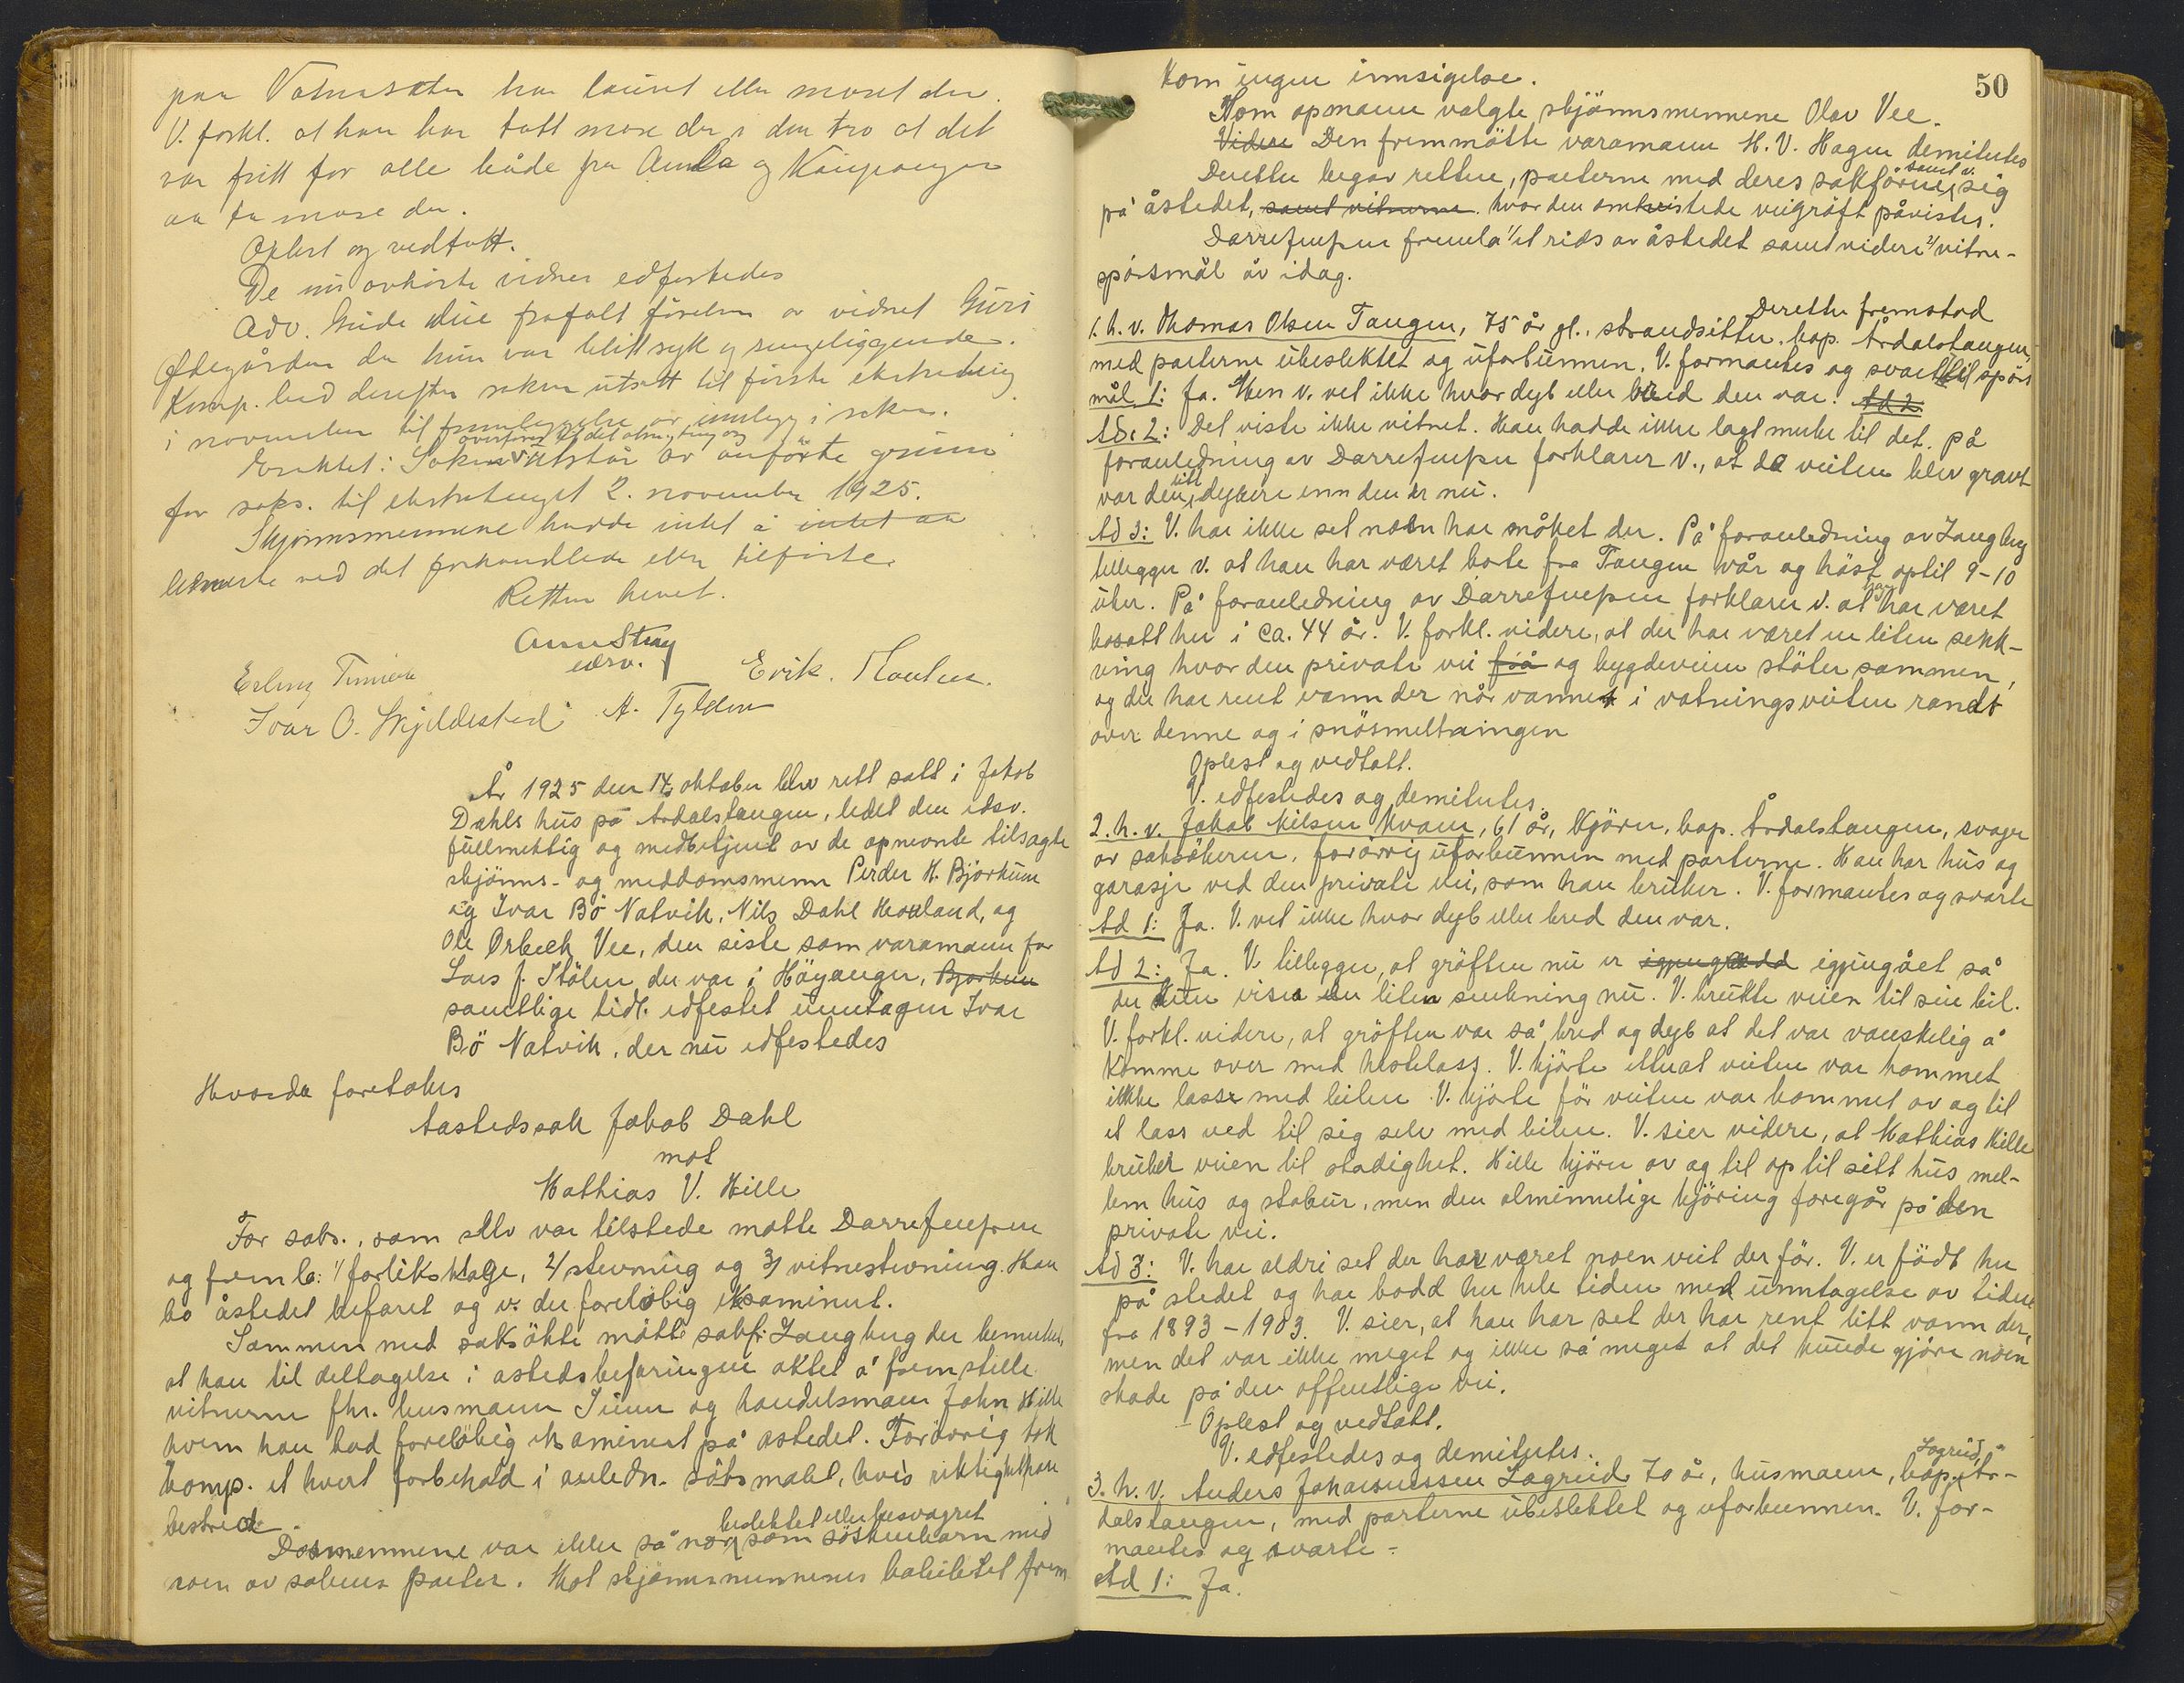 paa Vatnasæter har lauvet eller moset der.
V. forkl. at han har tatt mose der i den tro at det
var fritt for alle både fra Amla og Kaupanger
aa ta mose der.
Oplest og vedtatt.
De nu avhørte vidner edfestedes
Adv. frafalt førelsen av vidnet Guri
Ødegården da hun var blitt syk og sengeliggende.
Komp. bad derefter saken utsatt til første ekstrating
i november til fremleggelse av innlegg i saken.
overføres til det alm. ting og
Eraktet: Saken utstår av anførte grunn
for saks. til ekstratinget 2. november 1925.
Skjønnsmennene hadde intet å intet aa
bemerke ved det forhandlede eller tilførte.
Retten hevet.
Arne Stray
edsv.
Erling Erik
Ivar O. Skjeldestad A. Tylden
År 1925 den 14 oktober blev rett satt i Jakob
Dahls hus på Årdalstangen, ledet den edsv.
fullmektig og medbetjent av de opnevnte tilsagte
skjønns- og meddomsmenn Peder H. Bjørkum
og Ivar Bö Natvik, Nils Dahl Hovland, og
Ole Orbeck Vee, den siste som varamann for
Lars J. Stölen der var i Höyanger, Bjorkum
samtlige tidl. edfestet unntagen Ivar
Bö Natvik, der nu edfestedes
Hvorda foretokes
Aastedssak Jakob Dahl
mot
Mathias V. Hille
For saks., som selv var tilstede møtte Darre Jenssen
og fremla: 1/ forliksklage, 2/ stevning og 3/ vitnestevning. Han
ba åstedet befaret og v. der foreløbig eksaminert.
Sammen med saksøkte møtte sakf. Langberg der bemerket,
at han til deltagelse i åstedsbefaringen aktet å fremstille
vitnerne fhv. husmann og handelsmann John Hille
hvem han bad foreløbig eksaminert på åstedet. Forøvrig tok
komp. et hvert forbehold i anledn. søksmålet, hvis riktighet han
bestred.
beslektet eller besvogret
Domsmennene var ikke så nær som söskenbarn med
noen av sakens parter. Mot skjønnsmennenes habilitet frem
50
kom ingen innsigelse.
Som opmann valgte skjönnsmennene Olav Vee.
Videre Den fremmötte varamann H. V. Hagen demitertes
samt v.
Deretter begav retten, parterne med deres sakförere, sig
på åstedet, samt vitnerne. hvor den omtvistede veigröft påvistes.
Darre Jenssen fremla 1/ et rids av åstedet samt videre 2/ vitne-
spörsmål av idag.
Deretter fremstod
1. h. v. Thomas Olsen Tangen, 75 år gl., strandsitter, bop. Årdalstangen,
med parterne ubeslektet og uforbunnen. V. formantes og svart til spörs
mål 1: Ja. Men v. vet ikke hvor dyb eller bred den var. Ad 2
Ad. 2: Det viste ikke vitnet. Han hadde ikke lagt merke til det. på
foranledning av Darre Jenssen forklarer v., at da veiten blev gravt
litt
var den dypere enn den er nu.
Ad 3: V. har ikke set noen har måket der. På foranledning av Langberg
tillegger v. at han har været borte fra Tangen vår og höst optil 9-10
uker. På foranledning av Darre Jenssen forklarer v. at han har været
bosatt her i ca. 44 år. V. forkl. videre, at der har været en liten senk-
ning hvor den private vei fra og bygdeveien stöter sammen,
og der har rent vann der når vannet i vatningsveiten randt
over denne og i snösmeltningen
Oplest og vedtatt.
V. edfestedes og demitertes.
2. h. v. Jakob Nilsen Kvam, 61 år, kjörer, bop. Årdalstangen, svoger
av saksökeren, forövrig uforbunnen med parterne. Han har hus og
garasje ved den private vei, som han bruker. V. formantes og svarte
Ad 1: Ja. V. vet ikke hvor dyb eller bred den var.
Ad 2: Ja. V. tillegger, at gröften nu er igjengrodd igjengået så
der kun vises en liten senkning nu. V. brukte veien til sin bil.
V. forkl. videre, at gröften var så bred og dyb at det var vanskelig å
komme over med hestelass. V. kjörte etterat veiten var kommet
ikke lass med bilen. V. kjörte för veiten var kommet av og til
et lass ved til sig selv med bilen. V. sier videre, at Mathias Hille
bruker veien til stadighet. Hille kjörer av og til op til sitt hus mel-
lem hus og stabur, men den almindelige kjöring foregår på den
private vei.
Ad 3: V. har aldri set der har været noen veit der för. V. er födt her
på stedet og har bodd her hele tiden med unntagelse av tiden
fra 1893 - 1903. V. sier, at han har set der har rent litt vann der,
men det var ikke meget og ikke så meget at det kunde gjöre noen
skade på den offentlige vei.
Oplest og vedtatt.
V. edfestedes og demitertes.
Lægreid,
3. h. v. Anders Johannessen Lægreid 70 år, husmann, bop. År-
dalstangen, med parterne ubeslektet og uforbunnen. V. for-
mantes og svarte:
Ad 1: Ja.